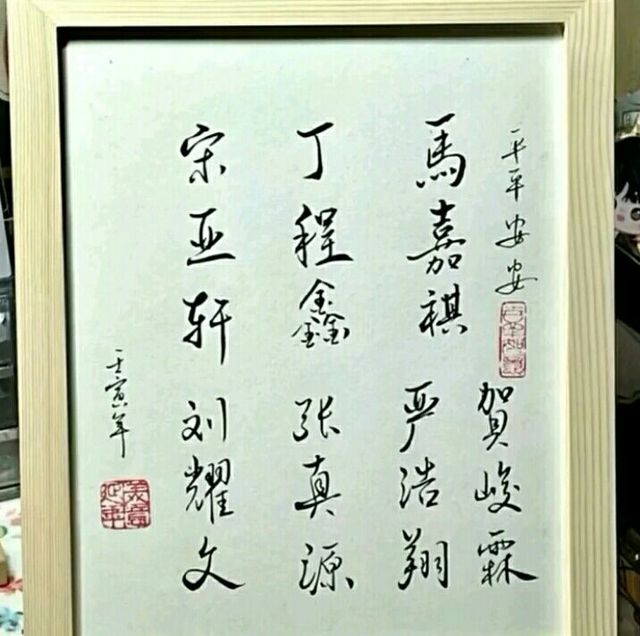 平平安安
賀峻霖
馬嘉祺
严浩翔
丁程鑫
张真源
宋亚轩
刘耀文
壬寅年
美意延年